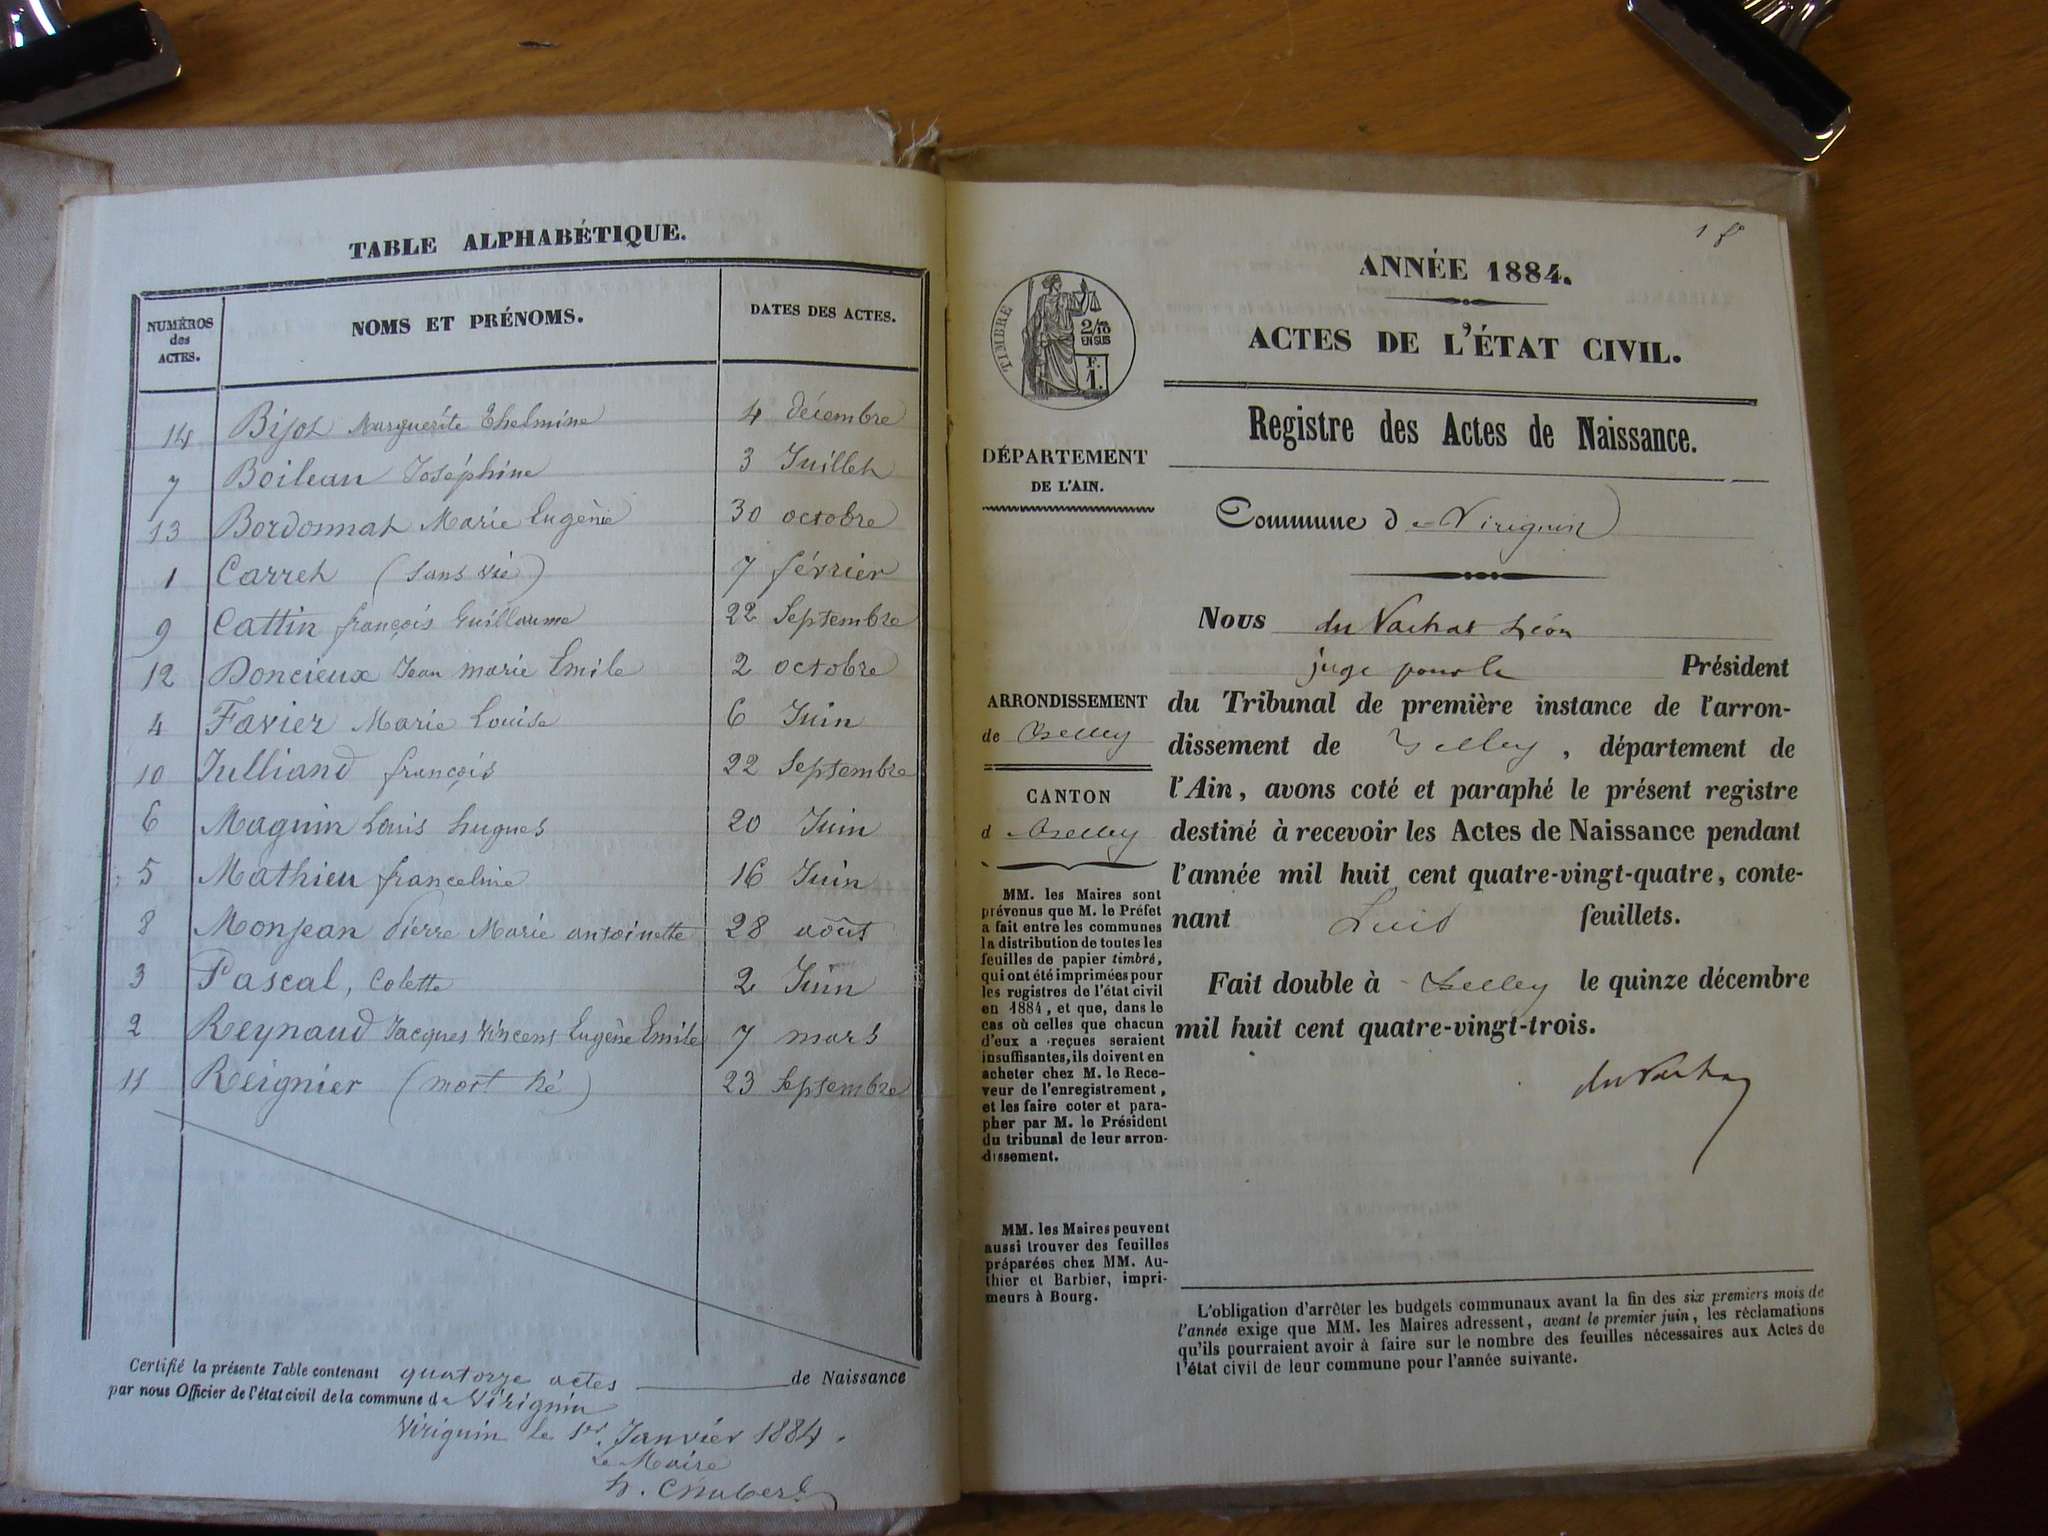 TABLE ALPHABÉTIQUE.
NUMÉROS des ACTES. NOMS ET PRÉNOMS. DATES DES ACTES.
14 Bijot Marguerite Thelmine 4 décembre
7 Boileau Joséphine 3 Juillet
13 Bordonnat Marie Eugènie 30 octobre
1 Carret (sans vie) 7 février
9 Cattin françois Guillaume 22 Septembre
12 Doncieux Jean marie Emile 2 octobre
4 Favier Marie Louise 6 Juin
10 Julliand françois 22 Septembre
6 Magnin Louis hugues 20 Juin
5 Mathieu franceline 16 Juin
8 Monjean Pierre Marie antoinette 28 août
3 Pascal, Colette 2 Juin
2 Reynaud Jacques Vincent Eugène Emile 7 mars
11 Reignier (mort né) 23 Septembre
Certifié la présente Table contenant quatorze actes de Naissance
par nous Officier de l'état civil de la commune de Virignin
Virignin le 1er Janvier 1884.
Le Maire
h. Chabert
1 f°
ANNÉE 1884.
ACTES DE L'ÉTAT CIVIL.
TIMBRE
2/10
EN SUS
F.
1.
Registre des Actes de Naissance.
DÉPARTEMENT
DE L'AIN.
Commune de Virignin
Nous du Vachat Léon
juge pour le Président
ARRONDISSEMENT
de Belley
CANTON
d Belley
du Tribunal de première instance de l'arron-
dissement de Belley, département de
l'Ain, avons coté et paraphé le présent registre
destiné à recevoir les Actes de Naissance pendant
l'année mil huit cent quatre-vingt-quatre, conte-
nant huit feuillets.
Fait double à Belley le quinze décembre
mil huit cent quatre-vingt-trois.
du Vachat
MM. les Maires sont
prévenus que M. le Préfet
a fait entre les communes
la distribution de toutes les
feuilles de papier timbré,
qui ont été imprimées pour
les registres de l'état civil
en 1884, et que, dans le
cas où celles que chacun
d'eux a reçues seraient
insuffisantes, ils doivent en
acheter chez M. le Rece-
veur de l'enregistrement,
et les faire coter et para-
pher par M. le Président
du tribunal de leur arron-
dissement.
MM. les Maires peuvent
aussi trouver des feuilles
préparées chez MM. Au-
thier et Barbier, impri-
meurs à Bourg.
L'obligation d'arrêter les budgets communaux avant la fin des six premiers mois de
l'année exige que MM. les Maires adressent, avant le premier juin, les réclamations
qu'ils pourraient avoir à faire sur le nombre des feuilles nécessaires aux Actes de
l'état civil de leur commune pour l'année suivante.